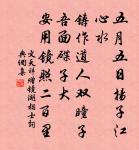 五月五日揚子江
心水
鑄作道人雙瞳子
吾面碟子大
安用鏡照二百里
文天祥贈鏡湖相士詞
典網集